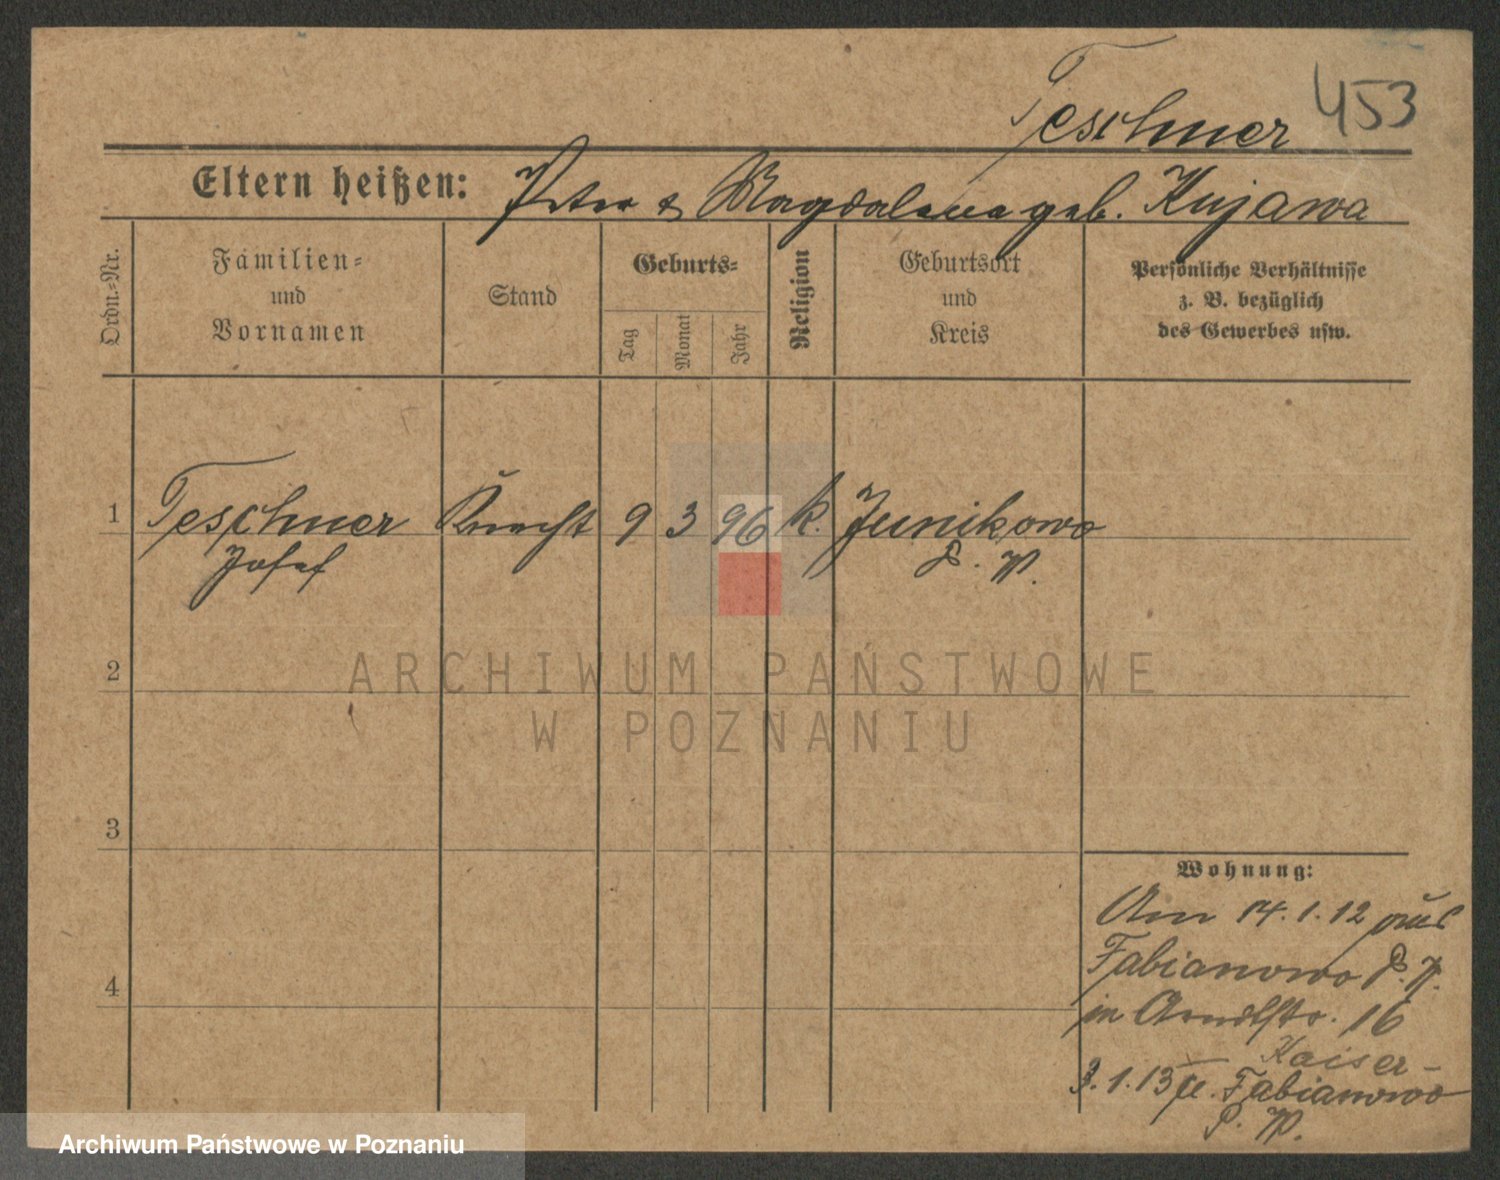 Teschner 453
Eltern heißen: Peter & Magdalena geb. Kujawa
Ordn.-Nr.
Familien-
und
Vornamen
Stand
Geburts-
Tag
Monat
Jahr
Religion
Geburtsort
und
Kreis
Persönliche Verhältnisse
z. B. bezüglich
des Gewerbes usw.
1 Teschner Knecht 9 3 96 k. Junikowo
Josef P. W.
2
ARCHIWUM PAŃSTWOWE
W POZNANIU
3
Wohnung:
Am 14.1.12 aus
Fabianowo P. W.
in Arndtstr. 16
4
Kaiser-
3.1.13 Fabianowo
P. W.
Archiwum Państwowe w Poznaniu